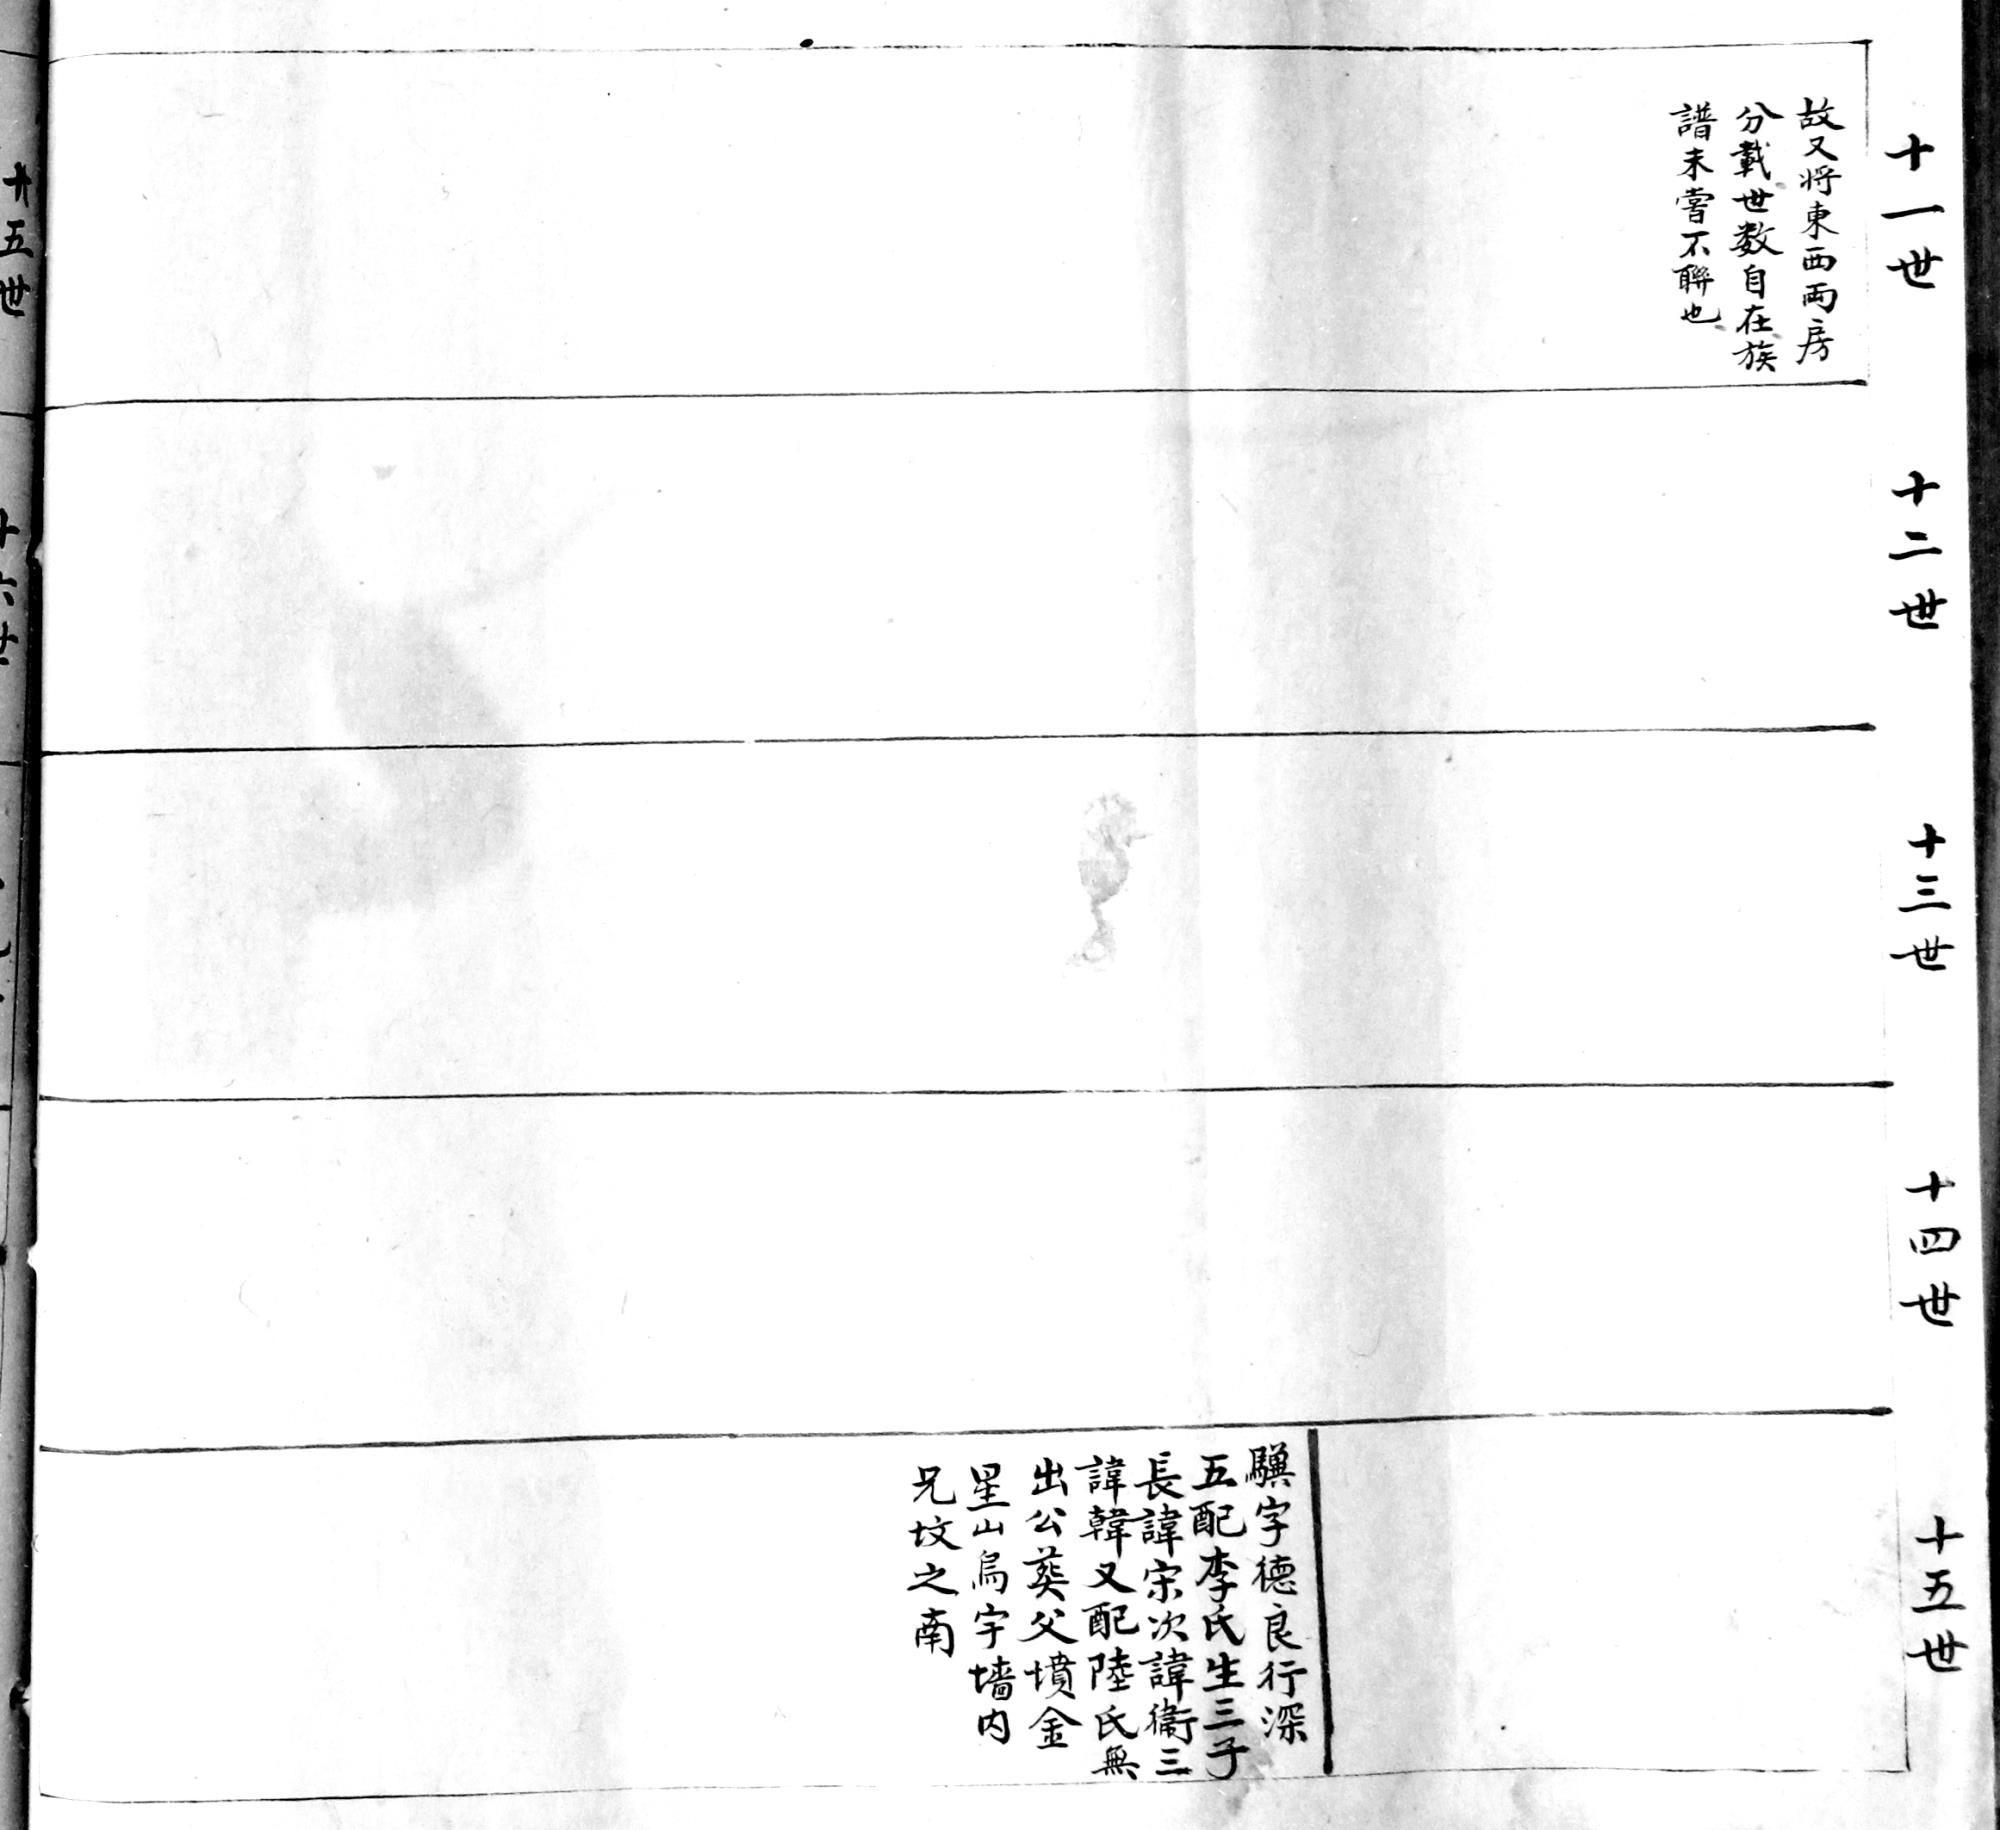 十一世
故又将東西両房
分載世数自在族
譜未嘗不聯也
十二世
十三世
十四世
十五世
驥字德良行深
五配李氏生三子
長諱宗次諱衞三
諱韓又配陸氏無
出公葬父墳金
星山烏字墻内
兄坟之南
十五世
十六世